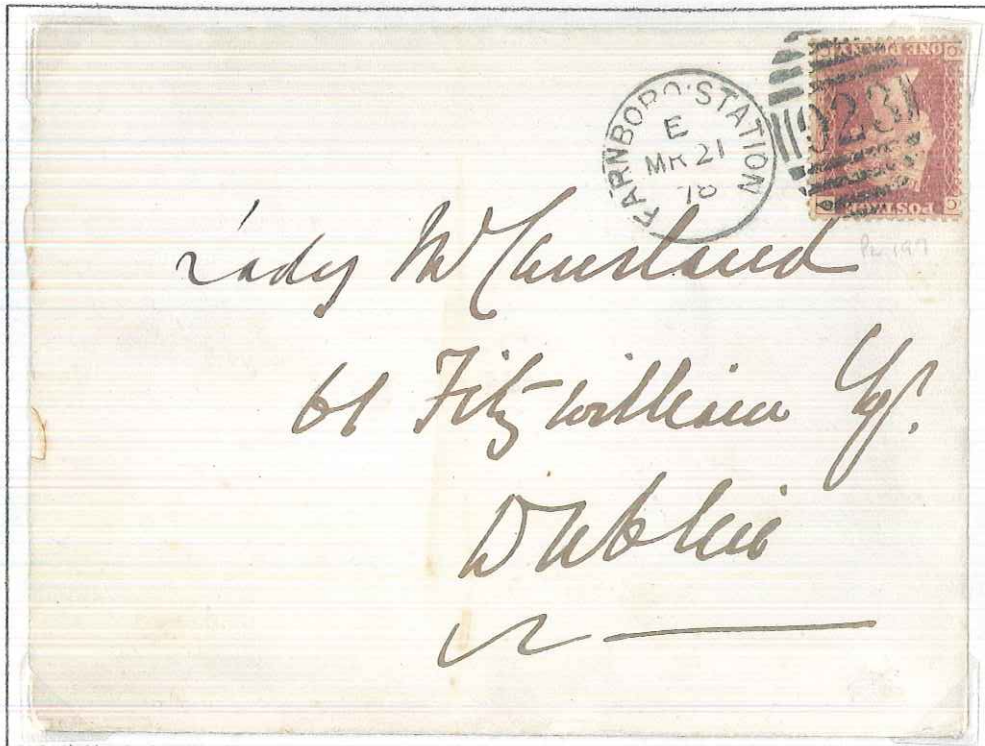 FARNBORO·STATION
E
MR 21
78
923
ONE PENNY
POSTAGE
C C
Lady McCausland
61 Fitzwilliam Sqr.
Dublin